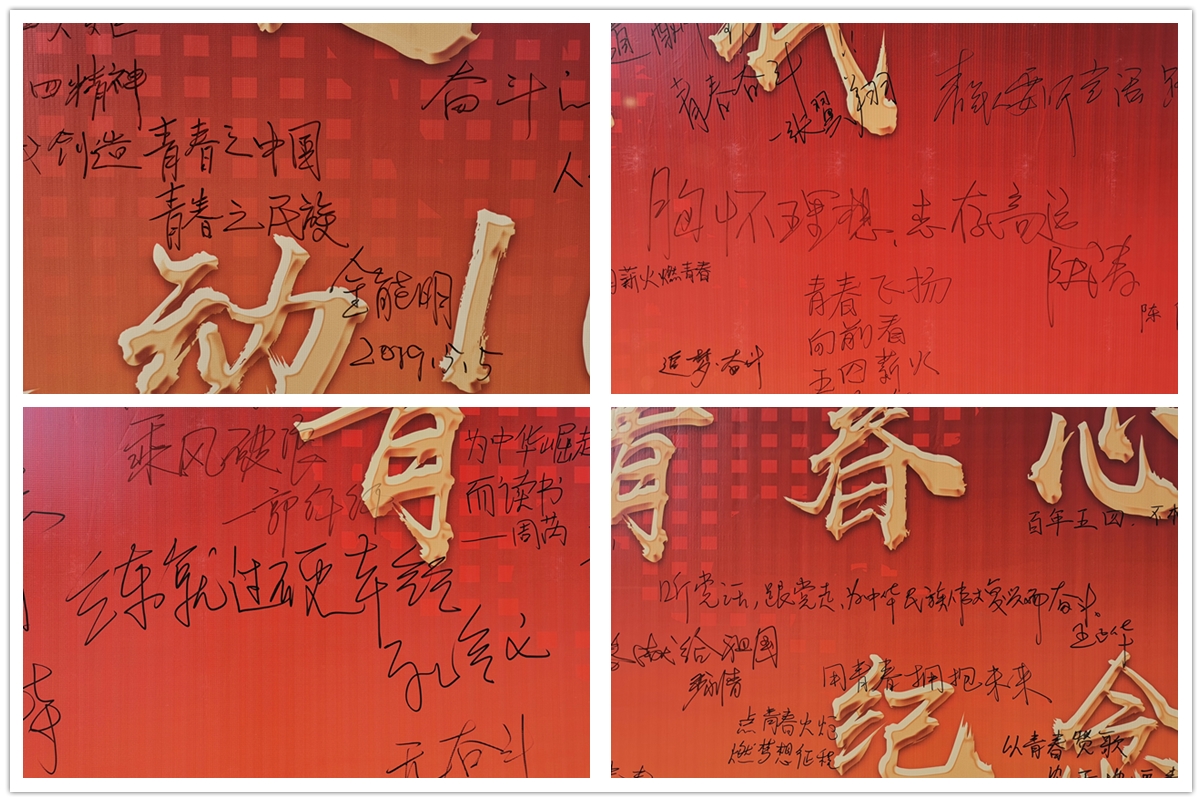 四精神
创造青春之中国
青春之民族
金能明
2019.5.5
奋斗
人
动
青春奋斗
张翼翔
胸怀理想,志存高远
薪火燃青春
青春飞扬
向前看
五四薪火
追梦·奋斗
陈
乘风破浪
青
为中华崛起
而读书
——周芮
练就过硬本领
孔令义
奋斗
青春心
百年五四.不
听党话,跟党走,为中华民族伟大复兴而奋斗。
给祖国
用青春拥抱未来
点青春火炬
燃梦想征程
纪念
以青春赞歌